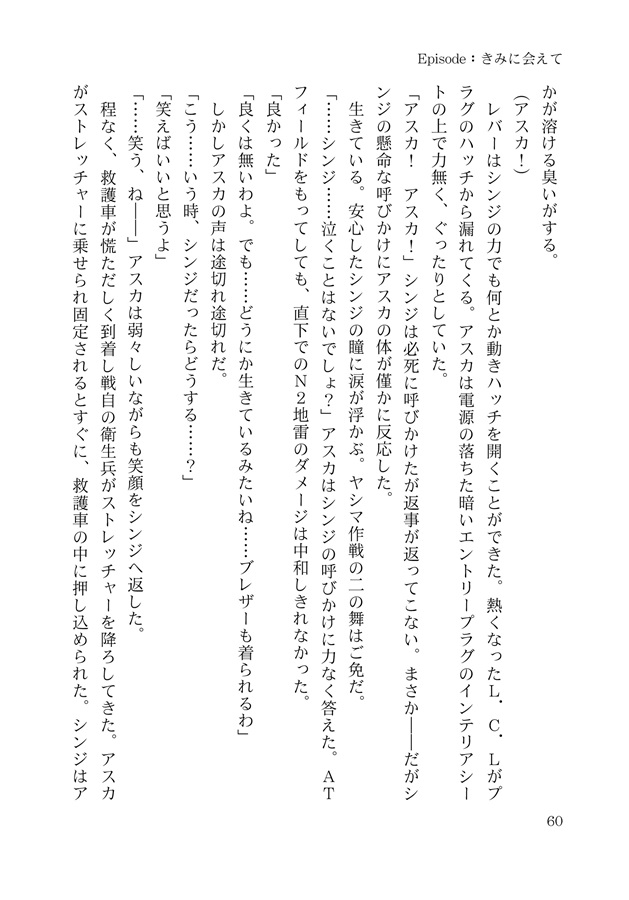 Episode：きみに会えて
かが溶ける臭いがする。
（アスカ！）
　レバーはシンジの力でも何とか動きハッチを開くことができた。熱くなったL．C．Lがプ
ラグのハッチから漏れてくる。アスカは電源の落ちた暗いエントリープラグのインテリアシー
トの上で力無く、ぐったりとしていた。
「アスカ！　アスカ！」シンジは必死に呼びかけたが返事が返ってこない。まさか――だがシ
ンジの懸命な呼びかけにアスカの体が僅かに反応した。
　生きている。安心したシンジの瞳に涙が浮かぶ。ヤシマ作戦の二の舞はご免だ。
「……シンジ……泣くことはないでしょ？」アスカはシンジの呼びかけに力なく答えた。AT
フィールドをもってしても、直下でのN2地雷のダメージは中和しきれなかった。
「良かった」
「良くは無いわよ。でも……どうにか生きているみたいね……ブレザーも着られるわ」
　しかしアスカの声は途切れ途切れだ。
「こう……いう時、シンジだったらどうする……？」
「笑えばいいと思うよ」
「……笑う、ね――」アスカは弱々しいながらも笑顔をシンジへ返した。
　程なく、救護車が慌ただしく到着し戦自の衛生兵がストレッチャーを降ろしてきた。アスカ
がストレッチャーに乗せられ固定されるとすぐに、救護車の中に押し込められた。シンジはア
60